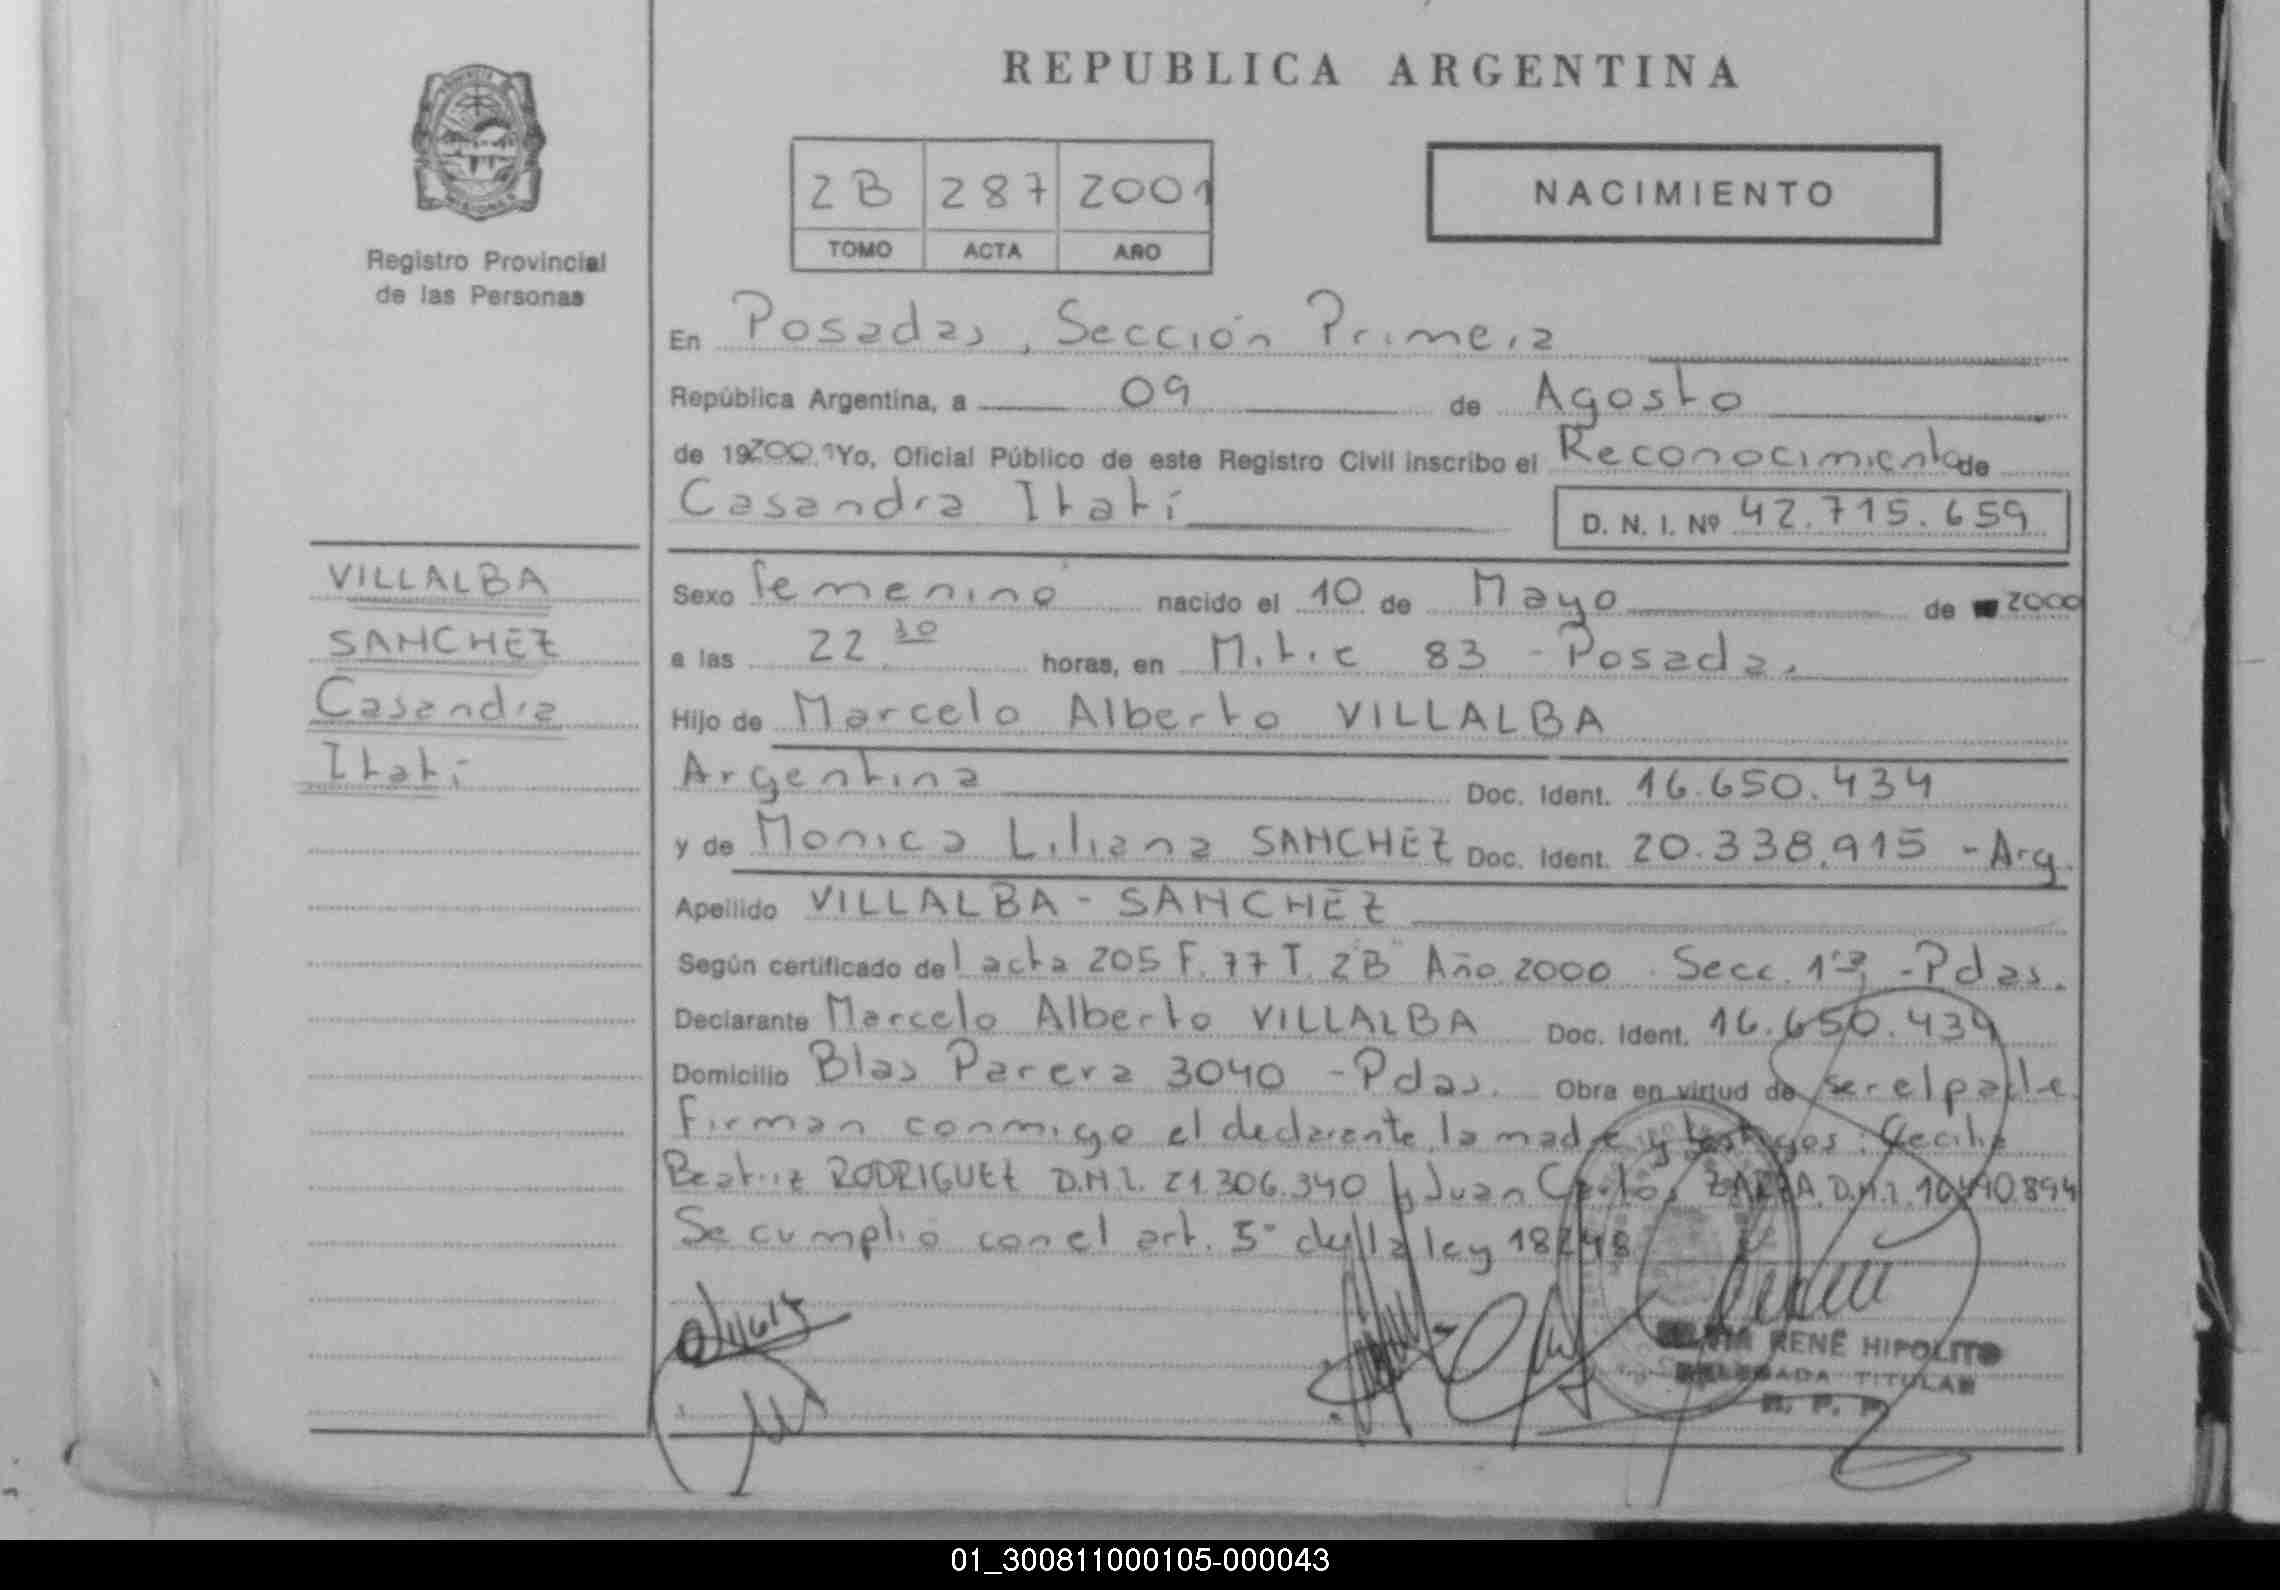 REPUBLICA ARGENTINA
2B 287 2001
TOMO ACTA AÑO
NACIMIENTO
Registro Provincial
de las Personas
En Posadas, Sección Primera
República Argentina, a 09 de Agosto
de 192001 Yo, Oficial Público de este Registro Civil inscribo el Reconocimiento de
Casandra Itatí
D. N. I. Nº 42.715.659
VILLALBA
SANCHEZ
Casandra
Itatí
Sexo femenino nacido el 10 de Mayo de 2000
a las 22 30 horas, en Mitre 83 - Posadas
Hijo de Marcelo Alberto VILLALBA
Argentina Doc. Ident. 16.650.434
y de Monica Liliana SANCHEZ Doc. Ident. 20.338.915 - Arg.
Apellido VILLALBA - SANCHEZ
Según certificado del acta 205 F. 77 T. 2"B" Año 2000 Secc. 1ra - Pdas.
Declarante Marcelo Alberto VILLALBA Doc. Ident. 16.650.434
Domicilio Blas Parera 3040 - Pdas. Obra en virtud de ser el padre.
Firman conmigo el declarante, la madre y testigos: Cecilia
Beatriz RODRIGUEZ D.N.I. 21.306.340 y Juan Carlos D.N.I.
Se cumplió con el art. 5º de la ley 18248
RENÉ HIPOLITO
DELEGADA TITULAR
R. P. P.
01_300811000105-000043